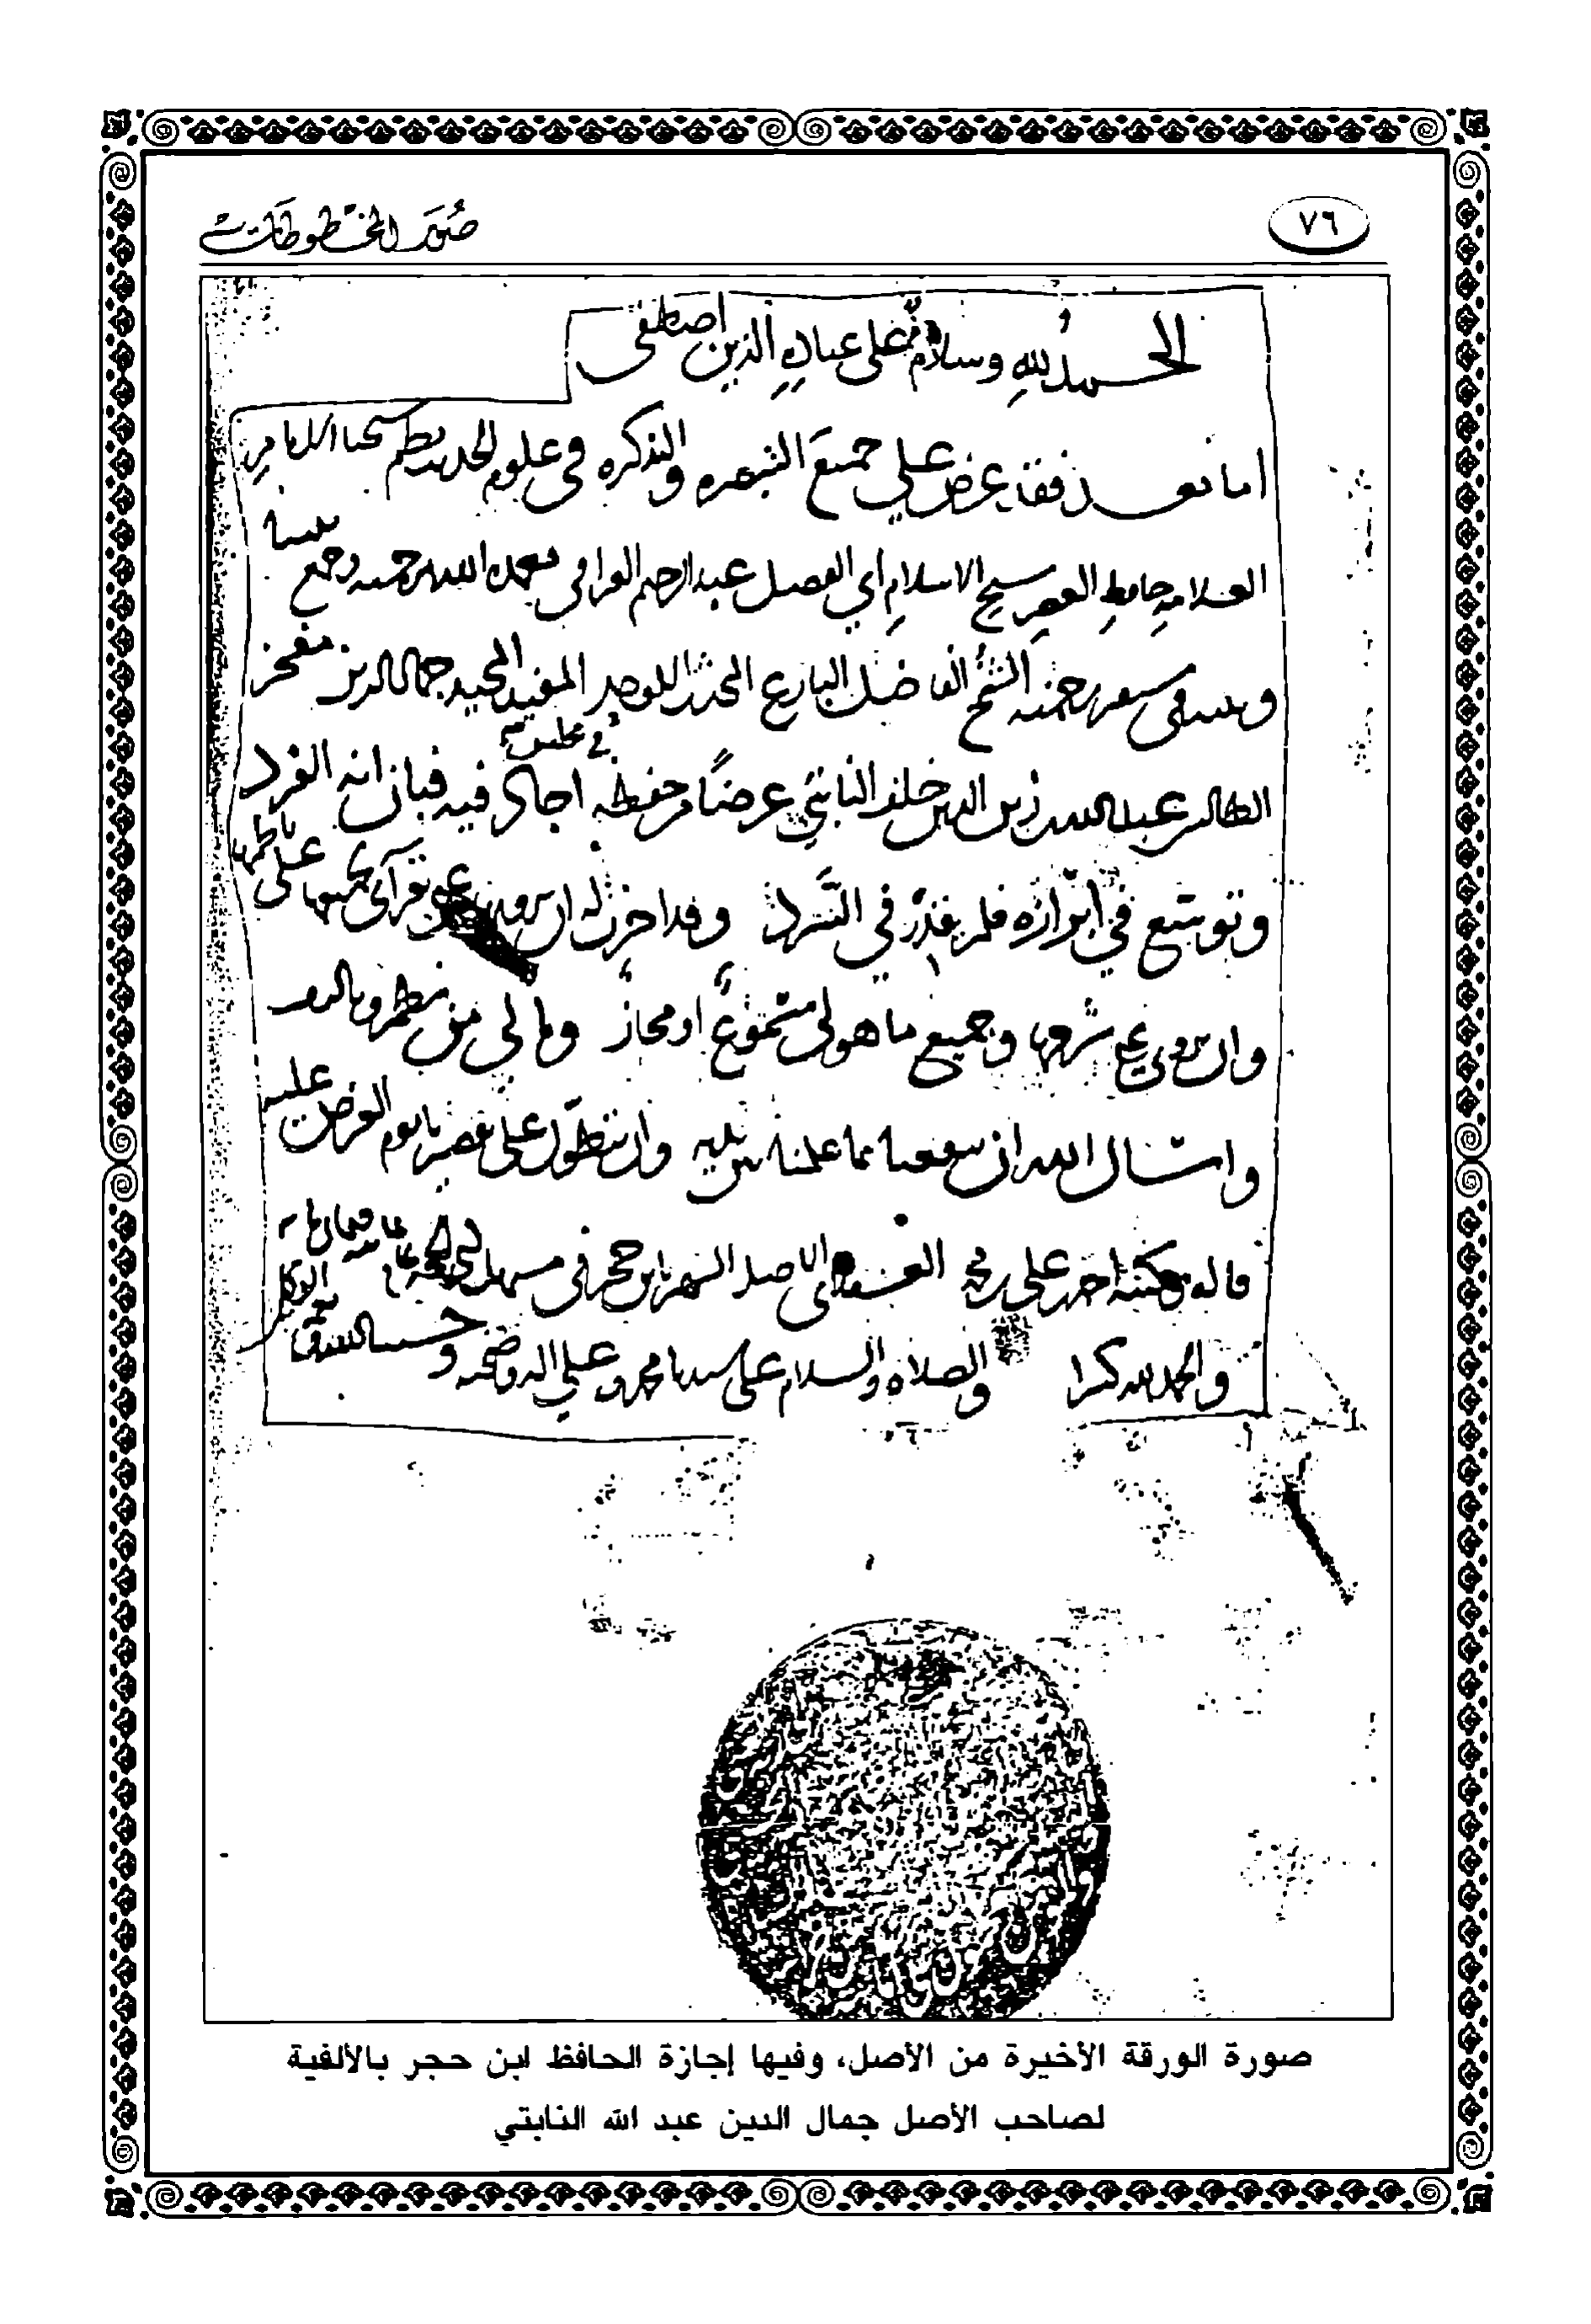 ٧٦
صور المخطوطات
الحمد لله وسلام على عباده الذين اصطفى
اما بعد فقد عرض علي جميع التبصره والتذكره في علوم الحديث نظم شيخنا الامام
العلامه حافظ العصر شيخ الاسلام ابي الفضل عبد الرحيم العراقي تغمده الله برحمته وجمع بيننا
وبينه في رحمته الشيخ الفاضل البارع المحدث الاوحد المفيد المجيد جمال الدين مفخر
الطالبين عبد الله بن زين الدين خلف النابتي عرضا من حفظه في مجلس اجاد فيه فبان انه الفرد
وتوبع في ابرازه فلم يقدر في السرد وقد اجزت له ان يرويه عني بقراتي لجميعها على ناظمها
وان يروي عني شرحها وجميع ما هو لي مسموع او مجاز وما لي من نظم وتاليف
واسال الله ان ينفعنا بما علمنا وان يتطول على يوم العرض عليه
قاله وكتبه احمد بن علي بن محمد العسقلاني الاصل الشهير بابن حجر في
والحمد لله كثيرا والصلاه والسلام على سيدنا محمد وعلى اله وصحبه وحسبنا الله ونعم الوكيل
صورة الورقة الأخيرة من الأصل، وفيها إجازة الحافظ ابن حجر بالألفية
لصاحب الأصل جمال الدين عبد الله النابتي